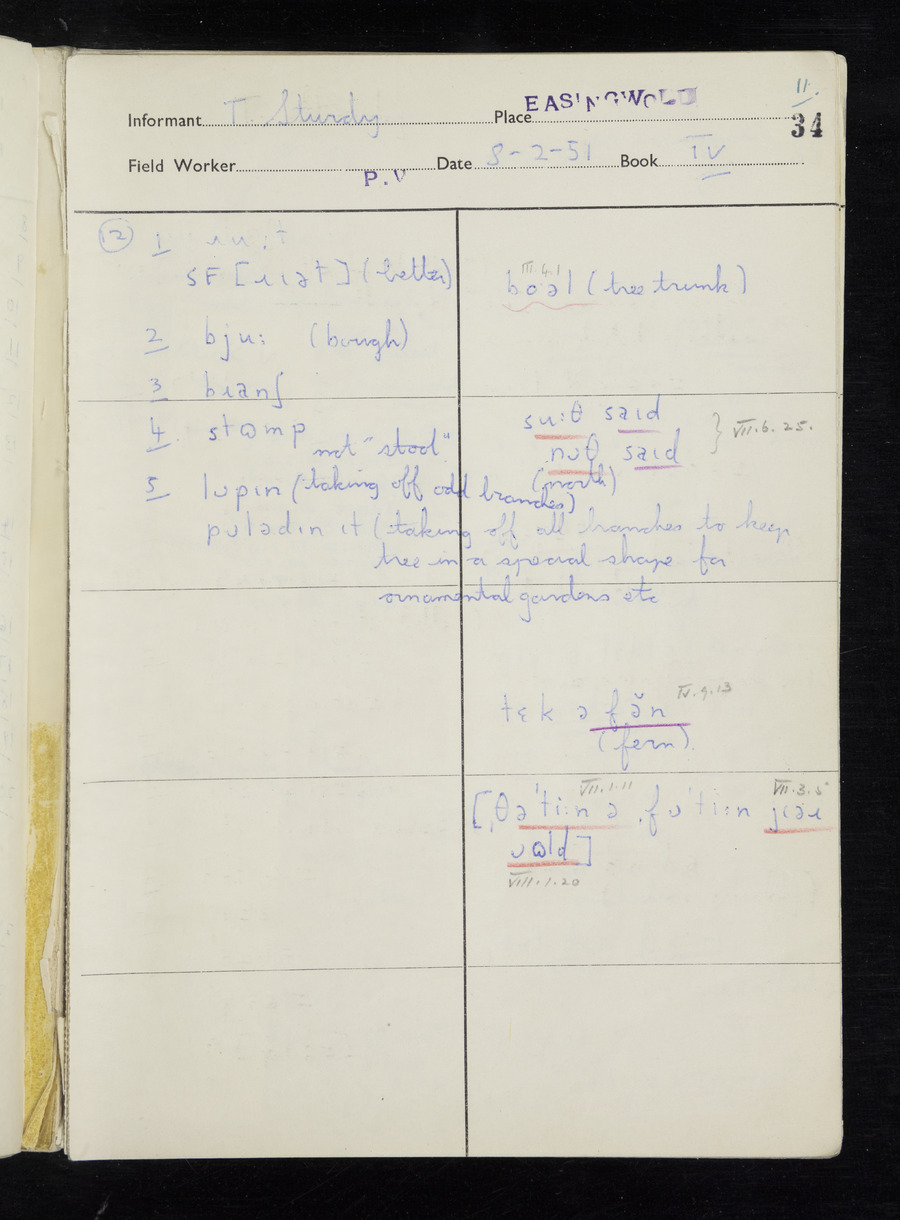 11.
Informant T. Sturdy Place EASINGWOLD 34
Field Worker P.V Date 8-2-51 Book IV
(12) 1 ɹu:t
SF [ɹɪət] (better)
2 bju: (bough)
3 bɹanʃ
4 stɒmp
not "stool"
5 lʊpɪn (taking off odd branches)
pʊladɪn ɪt (taking off all branches to keep
tree in a special shape for
ornamental gardens etc
III.4.1
boəl (tree trunk)
su:θ saɪd
nʊθ saɪd } VII.6.25.
(north)
tɛk ə făn IV.9.13
(fern).
VII.1.11 VII.3.5
[ˌθə'ti:n ə ˌfʊ'ti:n jɪəɹ
ʊɒld]
VIII.1.20